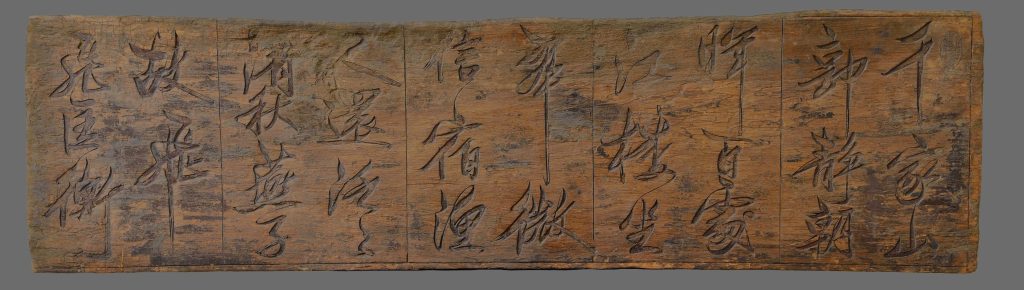 千家山
郭靜朝
暉百處
江樓坐
翠微
信宿漁
人還泛々
清秋燕子
故飛
飛匡衡